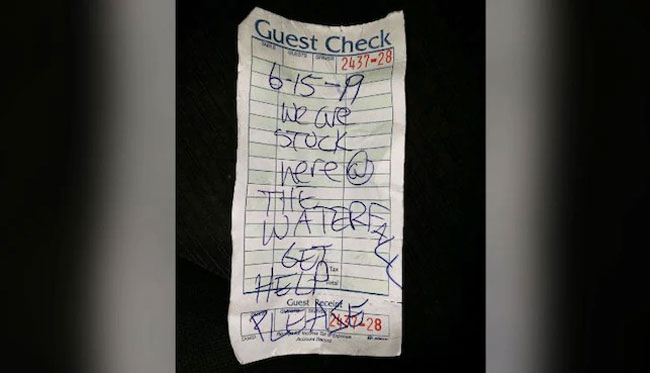 Guest Check
TABLE GUESTS SERVER
2437-28
6-15-19
we are
STUCK
here @
THE
WATERFALL
GET
Tax
HELP
Total
Guest Receipt
PLEASE
2437-28